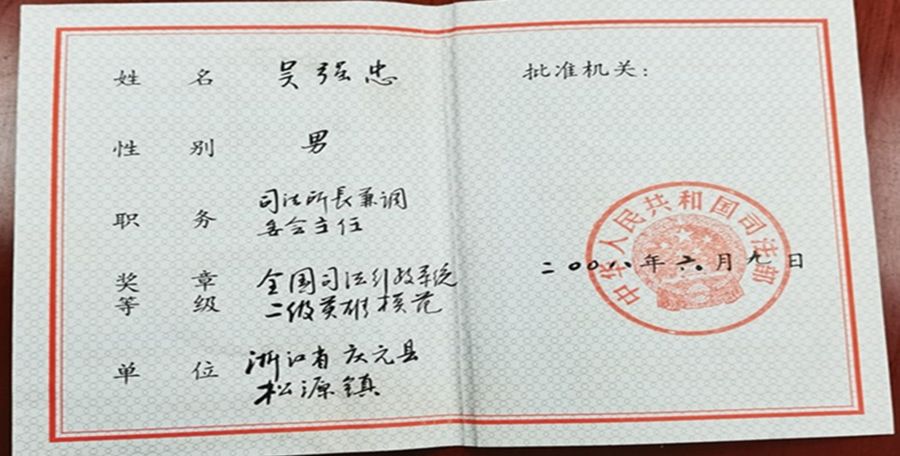 姓名 吴强忠
性别 男
职务 司法所長兼调
委会主任
奖章等级 全国司法行政系统
二级英雄模范
单位 浙江省庆元县
松源镇
批准机关：
中华人民共和国司法部
年六月九日